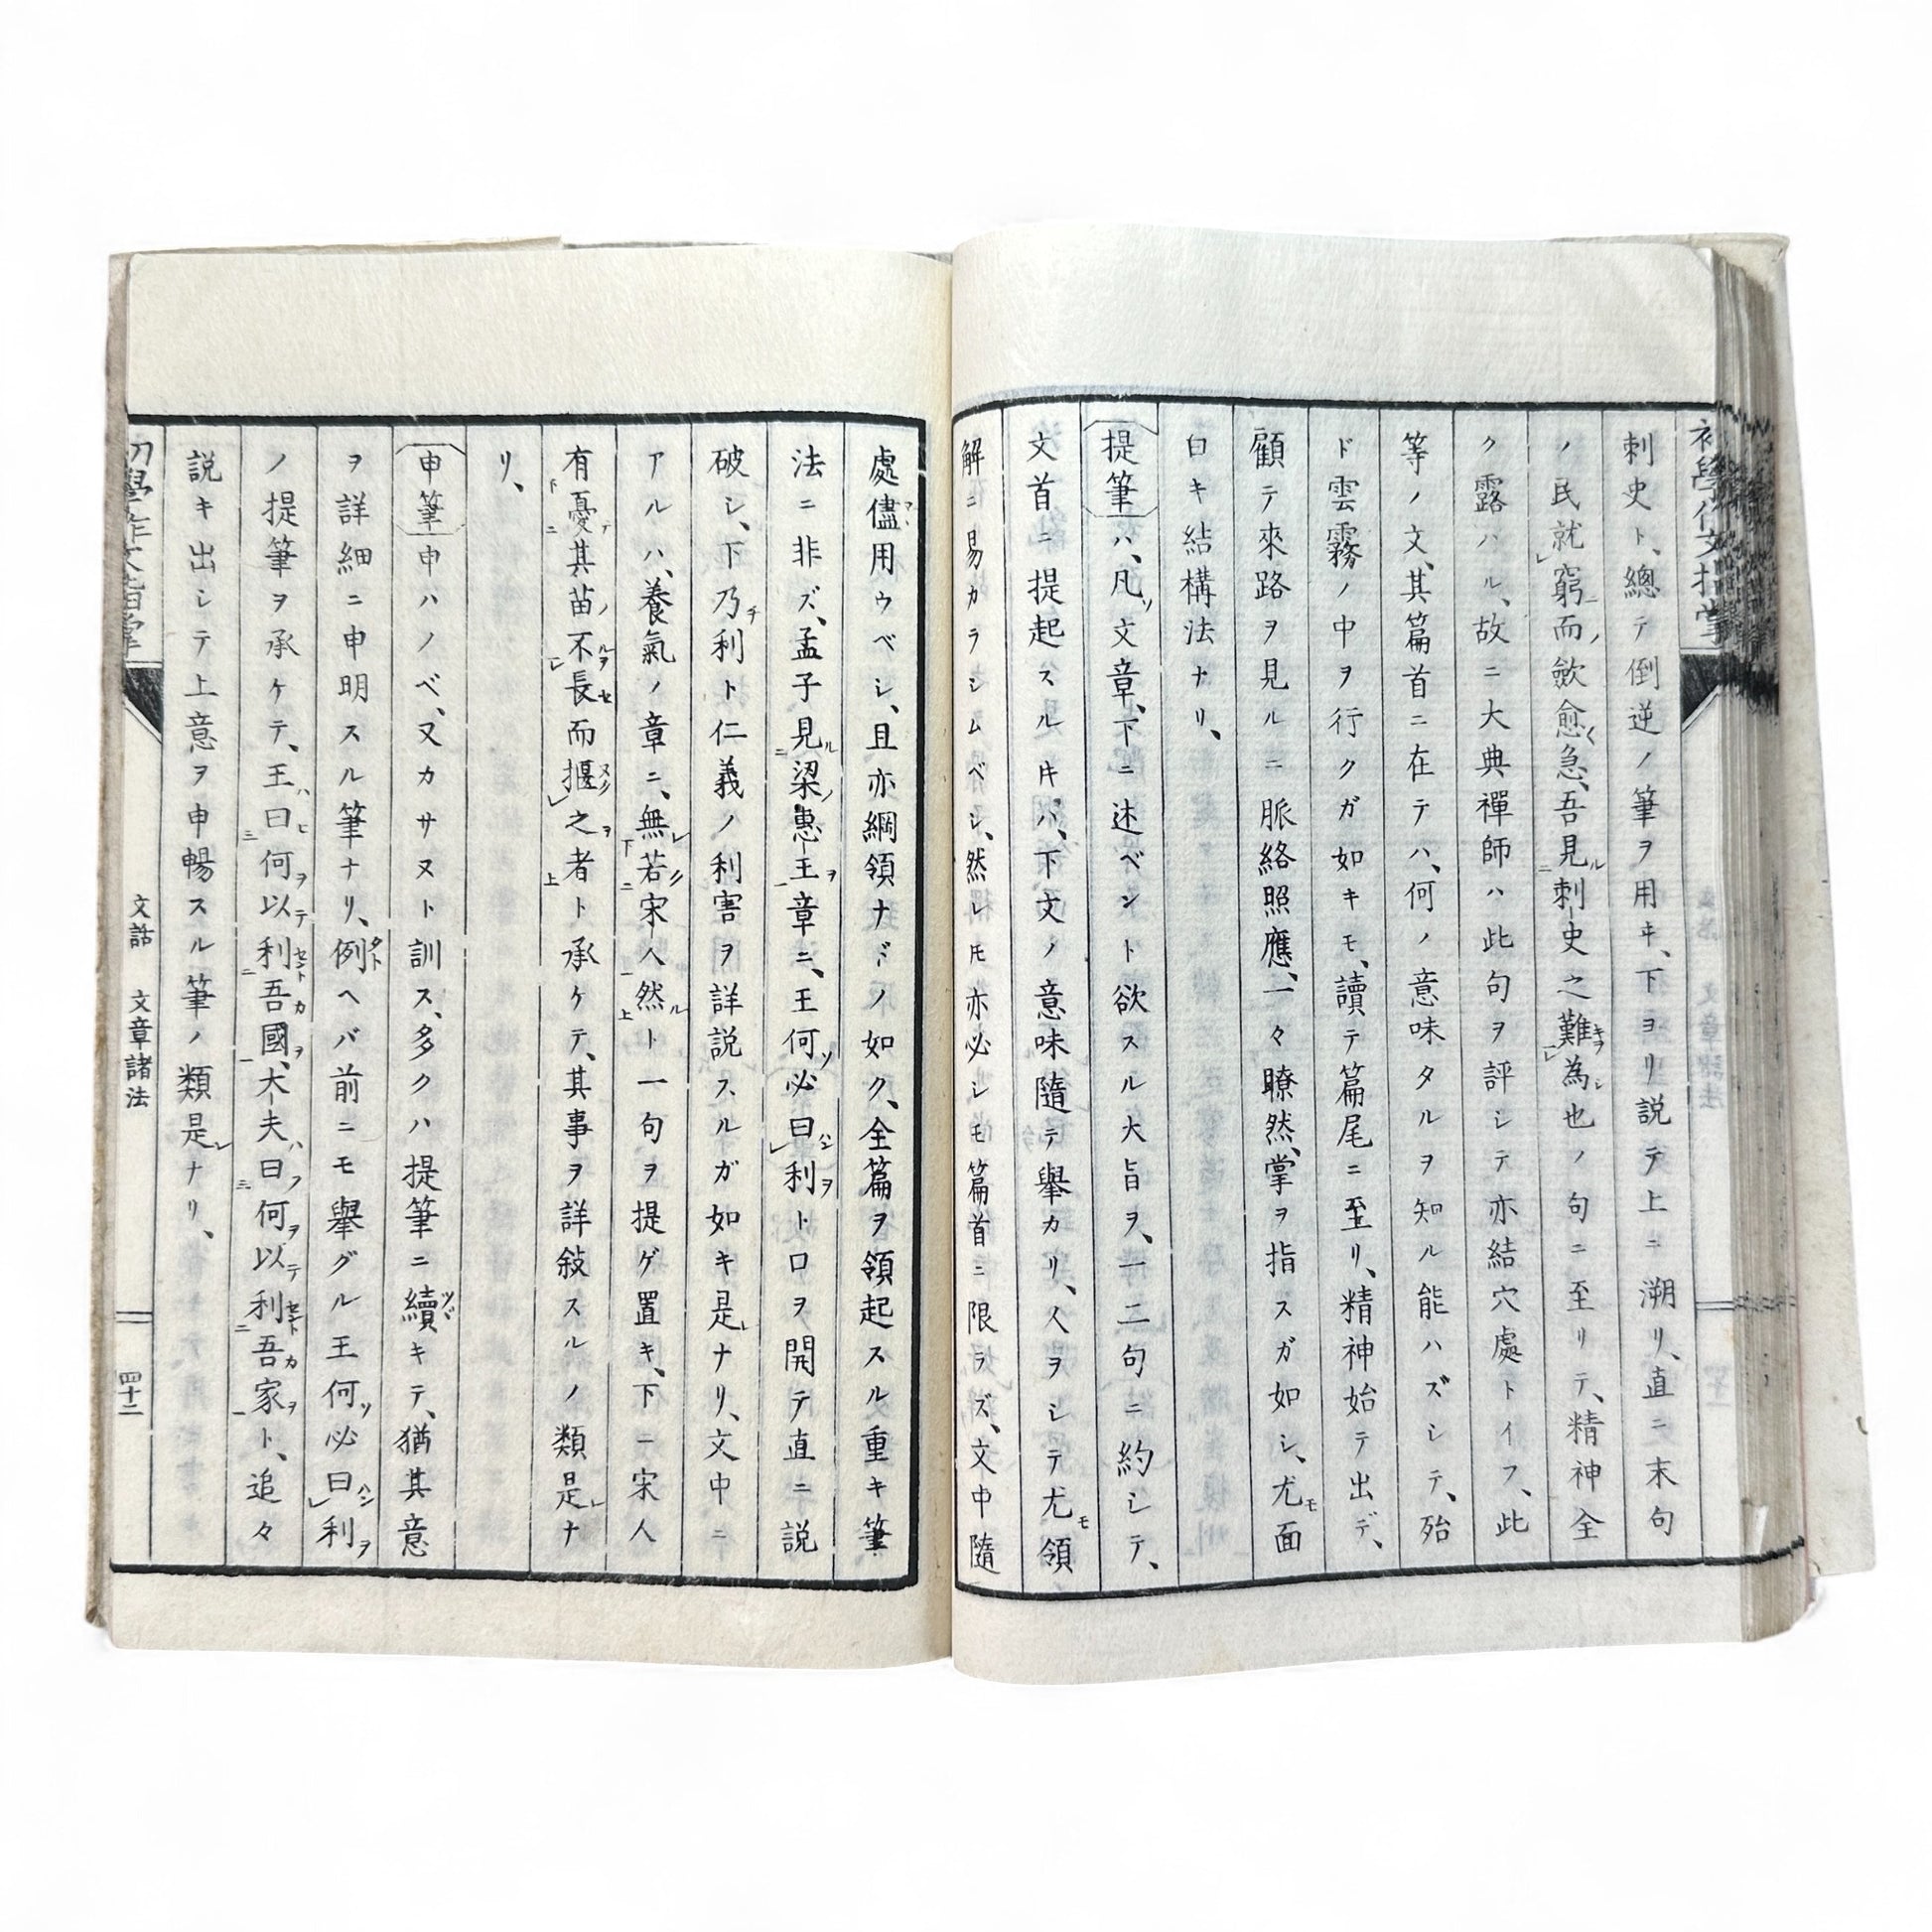 初學作文指掌
刺史ト、總テ倒逆ノ筆ヲ用ヰ、下ヨリ説テ上ニ溯リ、直ニ末句
ノ民就窮而歛愈急、吾見刺史之難為也ノ句ニ至リテ、精神全
ク露ハル、故ニ大典禪師ハ此句ヲ評シテ亦結穴處トイフ、此
等ノ文、其篇首ニ在テハ、何ノ意味タルヲ知ル能ハズシテ、殆
ド雲霧ノ中ヲ行クガ如キモ、讀テ篇尾ニ至リ、精神始テ出デ、
顧テ來路ヲ見ルニ脈絡照應、一々瞭然、掌ヲ指スガ如シ、尤モ面
白キ結構法ナリ、
提筆ハ、凡ソ文章、下ニ述ベント欲スル大旨ヲ、一二句ニ約シテ、
文首ニ提起スルトキハ、下文ノ意味隨テ擧カリ、人ヲシテ尤モ領
解ニ易カラシムベシ、然レトモ亦必シモ篇首ニ限ラズ、文中隨
處儘用ウベシ、且亦綱領ナドノ如ク、全篇ヲ領起スル重キ筆
法ニ非ズ、孟子見ル梁ノ惠王ヲ章ニ、王何ソ必曰ハン利ヲト口ヲ開テ直ニ説
破シ、下乃チ利ト仁義ノ利害ヲ詳説スルガ如キ是レナリ、文中ニ
アルハ、養氣ノ章ニ、無レ若クノ宋人ノ然ルト一句ヲ提ゲ置キ、下ニ宋人
有憂テ其苗ノ不ルヲ長セ而揠之ヲ者ト承ケテ、其事ヲ詳敍スルノ類是レナ
リ、
申筆 申ハノベ、又カサヌト訓ス、多クハ提筆ニ續ツヾキテ、猶其意
ヲ詳細ニ申明スル筆ナリ、例タトヘバ前ニモ擧グル王何ソ必曰ハン利ヲ
ノ提筆ヲ承ケテ、王ハ曰ヒ何ヲ以テ利セント吾カ國ヲ、大夫ハ曰フ何ヲ以テ利セント吾カ家ヲト、追々
説キ出シテ上意ヲ申暢スル筆ノ類是レナリ、
初學作文指掌
文話 文章諸法
四十二